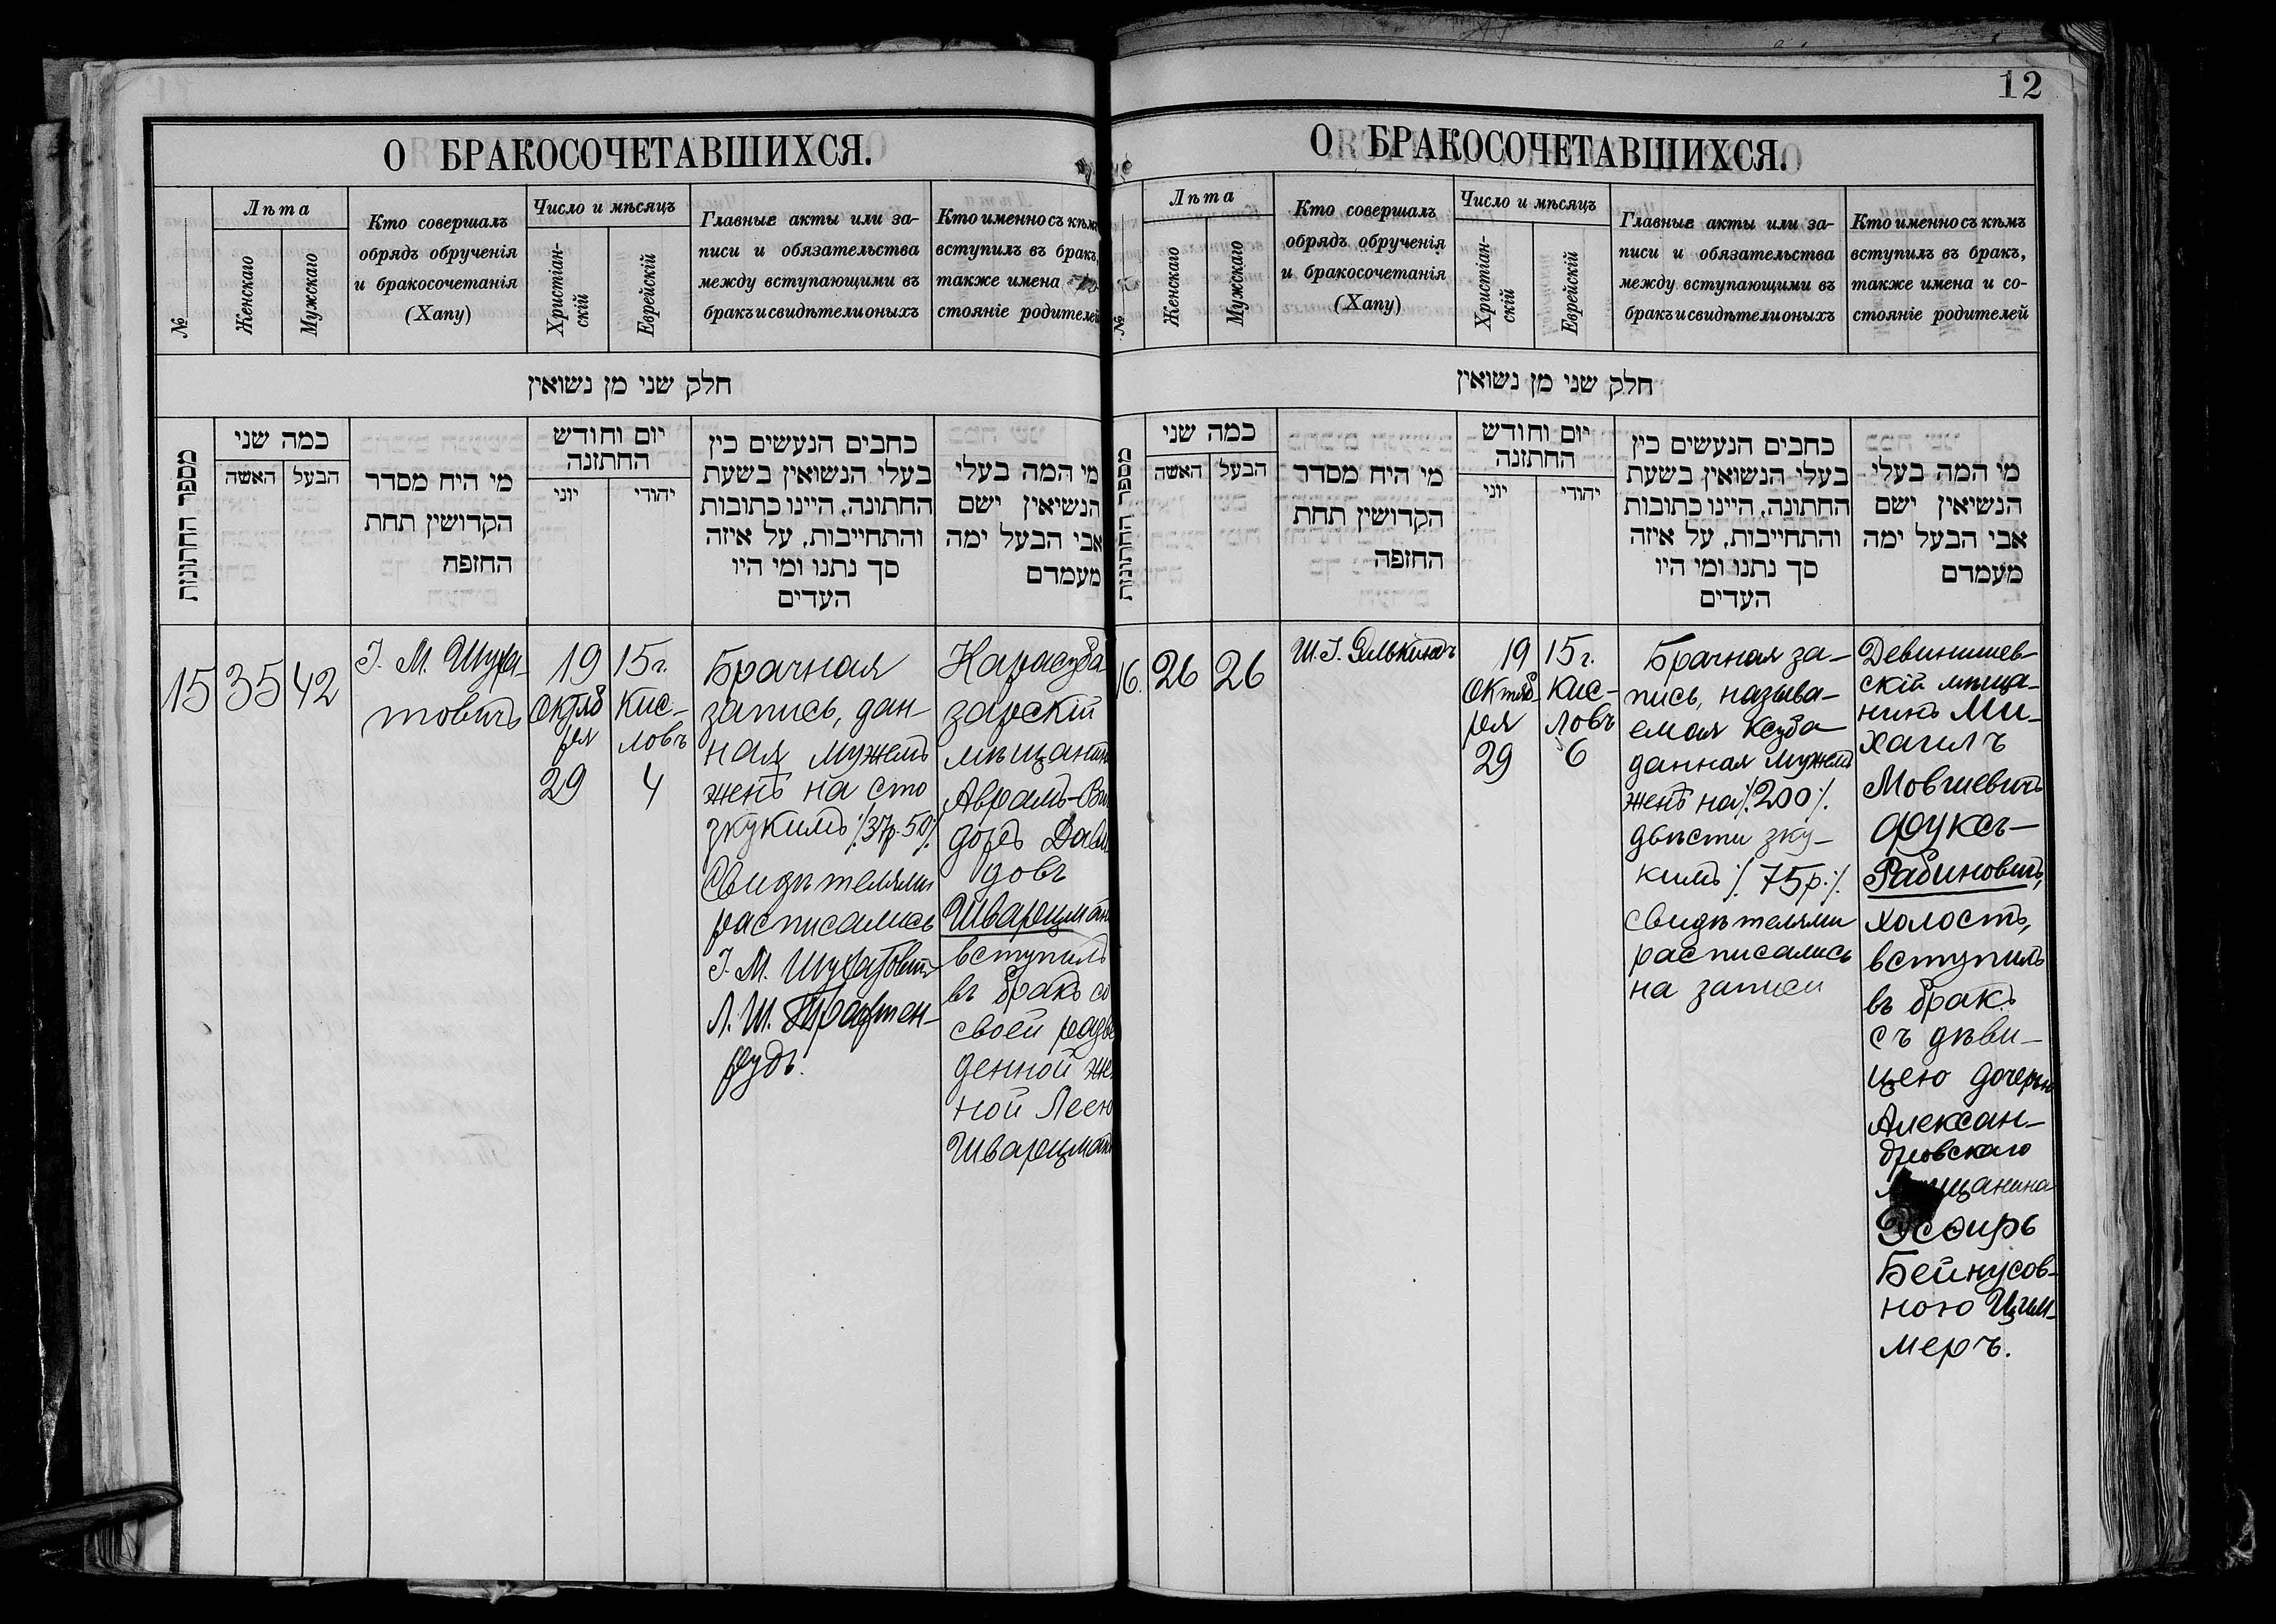 О БРАКОСОЧЕТАВШИХСЯ.
№
Лѣта
Женскаго
Мужскаго
Кто совершалъ
обрядъ обрученія
и бракосочетанія
(Хапу)
Число и мѣсяцъ
Христіан-
скій
Еврейскій
Главные акты или за-
писи и обязательства
между вступающими въ
бракъ и свидѣтели оныхъ
Кто именно съ кѣмъ
вступилъ въ бракъ,
также имена
стояніе родителей
חלק שני מן נשואין
מספר החתונות
כמה שני
האשה
הבעל
מי היח מסדר
הקדושין תחת
החזפה
יום וחודש
החתזנה
יוני
יהודי
כחבים הנעשים כין
בעלי הנשואין בשעת
החתונה, היינו כתובות
והתחייבות, על איזה
סך נתנו ומי היו
העדים
מי המה בעלי
הנשיאין ישם
אבי הבעל ימה
מעמדם
15
35
42
І. М. Шуфа-
товичъ
19
Октяб
ря
29
15 г.
Кис-
ловъ
4
Брачная
запись, дан-
ная мужемъ
женѣ на сто
зкукимъ ./. 37р. 50 ./.
Свидѣтелями
расписались
І. М. Шуфатовичъ
Л. Ш. Трахтен-
рудъ.
Карасуба
зарскій
мѣщанинъ
Аврамъ-Ви
доръ Давы
довъ
Шварцман
вступилъ
въ бракъ со
своей разве
денной же
ной Леею
Шварцман
12
О БРАКОСОЧЕТАВШИХСЯ.
№
Лѣта
Женскаго
Мужскаго
Кто совершалъ
обрядъ обрученія
и бракосочетанія
(Хапу)
Число и мѣсяцъ
Христіан-
скій
Еврейскій
Главные акты или за-
писи и обязательства
между вступающими въ
бракъ и свидѣтели оныхъ
Кто именно съ кѣмъ
вступилъ въ бракъ,
также имена и со-
стояніе родителей
חלק שני מן נשואין
מספר החתונות
כמה שני
האשה
הבעל
מי היח מסדר
הקדושין תחת
החזפה
יום וחודש
החתזנה
יוני
יהודי
כחבים הנעשים כין
בעלי הנשואין בשעת
החתונה, היינו כתובות
והתחייבות, על איזה
סך נתנו ומי היו
העדים
מי המה בעלי
הנשיאין ישם
אבי הבעל ימה
מעמדם
16.
26
26
Ш. І. Элькиндъ
19
Октяб
ря
29
15 г.
Кис-
ловъ
6
Брачная за-
пись, называ-
емая Ксуба-
данная мужемъ
женѣ на ./. 200 ./.
двѣсти зку-
кимъ ./. 75 р. ./.
Свидѣтелями
расписались
на записи
Девинишев-
скій мѣща-
нинъ Ми-
хаилъ
Мовшевичъ
Фуксъ-
Рабиновичъ,
холостъ,
вступилъ
въ бракъ
съ дѣви-
цею дочерью
Алексан-
дровскаго
мѣщанина
Эсѳирь
Бейнусов-
ною Цим-
меръ.